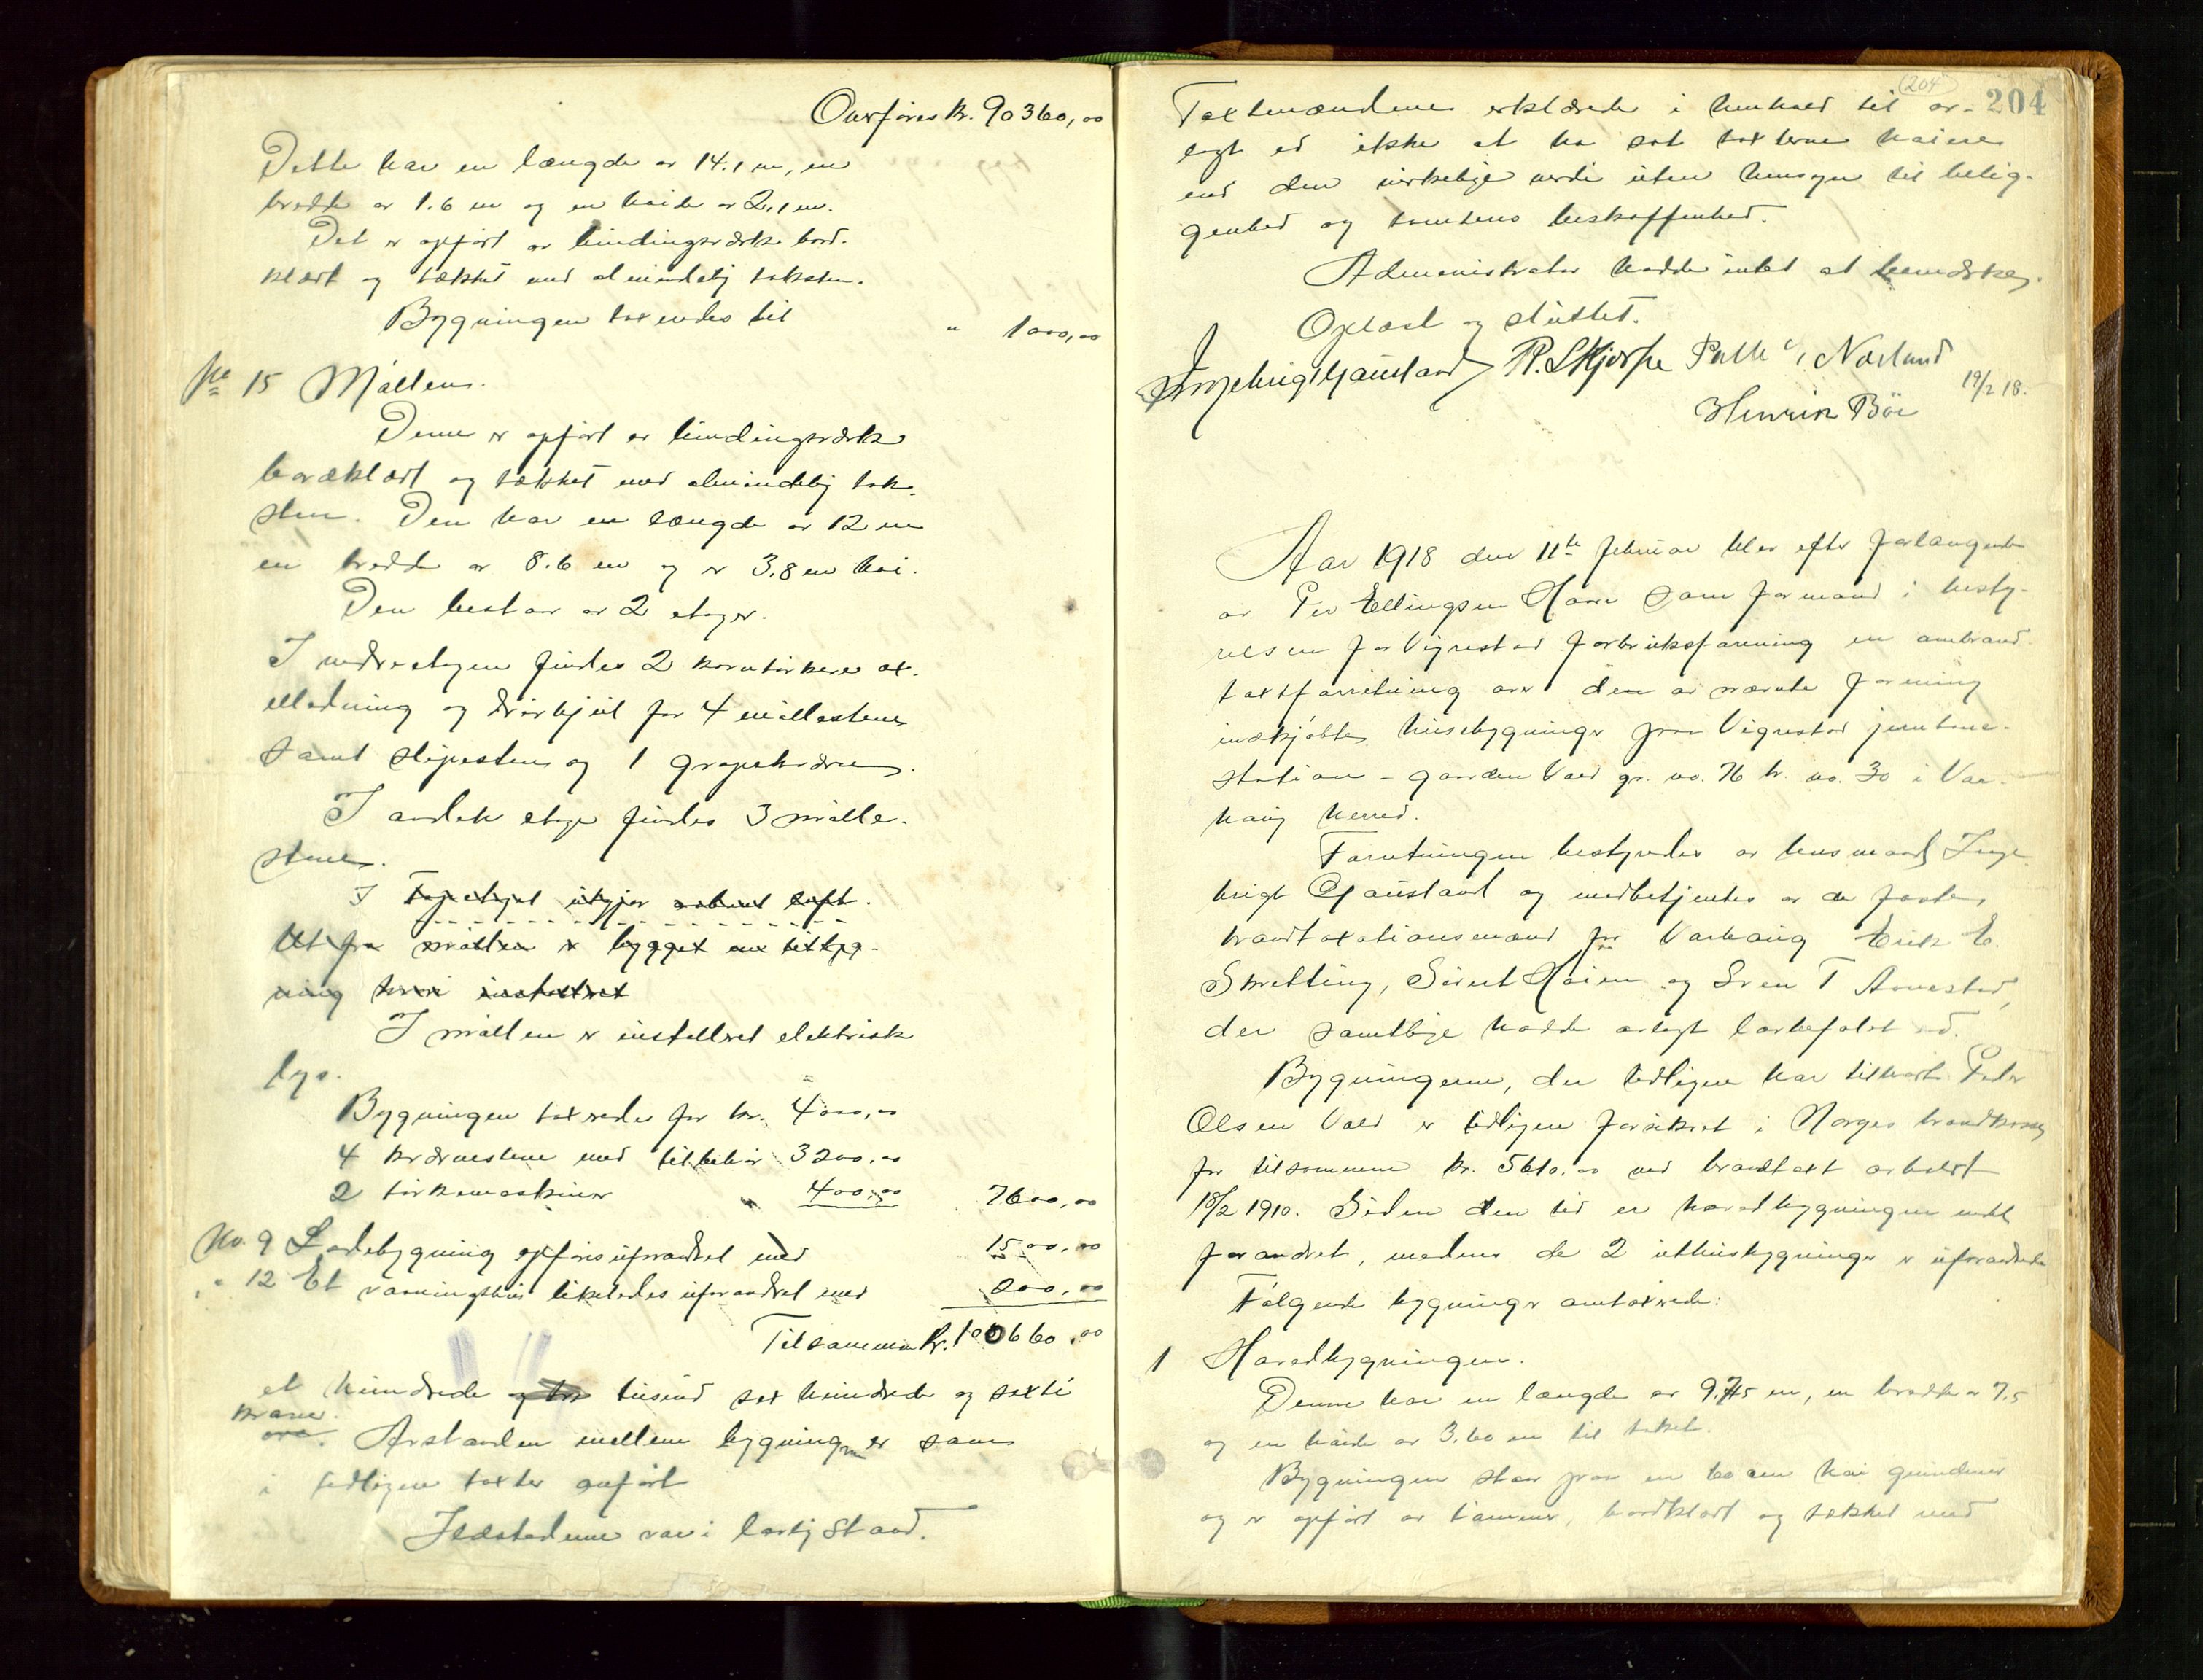 Overføres kr. 90360,00
Dette har en længde av 14.1 m, en
bredde av 1.6 m og en høide av 2,1 m.
Det er opført av bindingsverk bord-
klædt og tækket med almindelig taksten.
Bygningen taxeredes til " 1000,00
No 15 Møllen.
Denne er opført av bindingsverk
bordklædt og tækket med almindelig tak-
sten. Den har en længde av 12 m
en bredde av 8.6 m og er 3,8 m høi.
Den bestaar av 2 etager.
I nedre etagen findes 2 korntørkere ax-
elledning og drivhjul for 4 møllestene
samt slipesten og 1 grapekværn.
I anden etage findes 3 mølle-
stene.
I Tøjetøjet utgjør aabent loft.
Ut fra møllen er bygget en tilbyg-
ning hvori installeret
I møllen er installeret elektrisk
lys.
Bygningen taxeredes for kr. 4000,00
4 kværnstene med tilbehør 3200,00
2 tørkemaskiner " 400,00 7600,00
No. 9 Ladebygning opføres uforandret med 1500,00
" 12 Et vaaningshus likeledes uforandret med 200,00
Tilsammen Kr. 100660,00
et hundrede og tusind sex hundrede og sexti
kroner.
øre. Avstanden mellem bygningerne er som
i tidligere taxter anført
Ildstederne var i lovlig stand.
(204)
204
Taxtmændene erklærede i henhold til av-
lagt ed ikke at ha sat taxterne høiere
end den virkelige verdi uten hensyn til belig-
genhed og tomtens beskaffenhed.
Administrator hadde intet at bemerke.
Oplæst og sluttet.
Ingebrigt Gausland P. L Kjosse Palle , Nærland
Henrik Bøe 19/2 18.
Aar 1918 den 11te februar blev efter forlangende
av Per Ellingsen Haar som formand i besty-
relsen for Vigrestad forbruksforening en ombrand-
taxtforretning over den av nævnte forening
indkjøbte husebygninger paa Vigrestad jernbane-
station - gaarden Vold gr. no. 76 br. no. 30 i Var-
haug herred.
Forretningen bestyredes av lensmand Inge-
brigt Gausland og medbetjentes av de faste
brandtaxationsmænd for Varhaug Erik E.
Skretting, Sivert Høien og Sven T Aanestad,
der samtlige hadde avlagt lovbefalet ed.
Bygningerne, der tidligere har tilhørt Peder
Olsen Vold er tidligere forsikret i Norges brandkasse
for tilsammen kr. 5610.00 ved brandtaxt avholdt
18/2 1910. Siden den tid er hovedbygningen endel
forandret, medens de 2 uthusbygninger er uforandrede
Følgende bygninger omtaxerede:
1 Hovedbygningen.
Denne har en længde av 9.45 m, en bredde av 7.5
og en høide av 3.60 m til taket.
Bygningen staar paa en 60 cm høi grundmur
og er opført av tømmer, bordklædt og tækket med